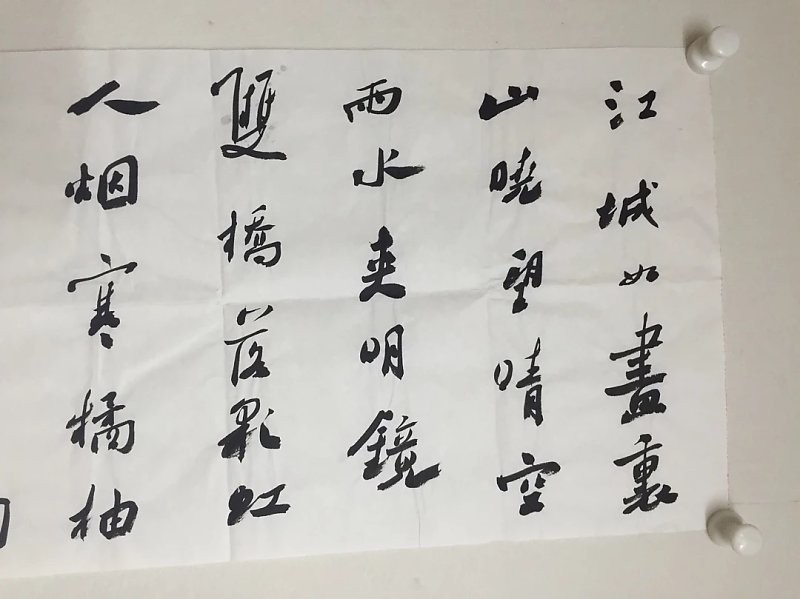 江城如畫裏
山曉望晴空
雨水夾明鏡
雙橋落彩虹
人烟寒橘柚